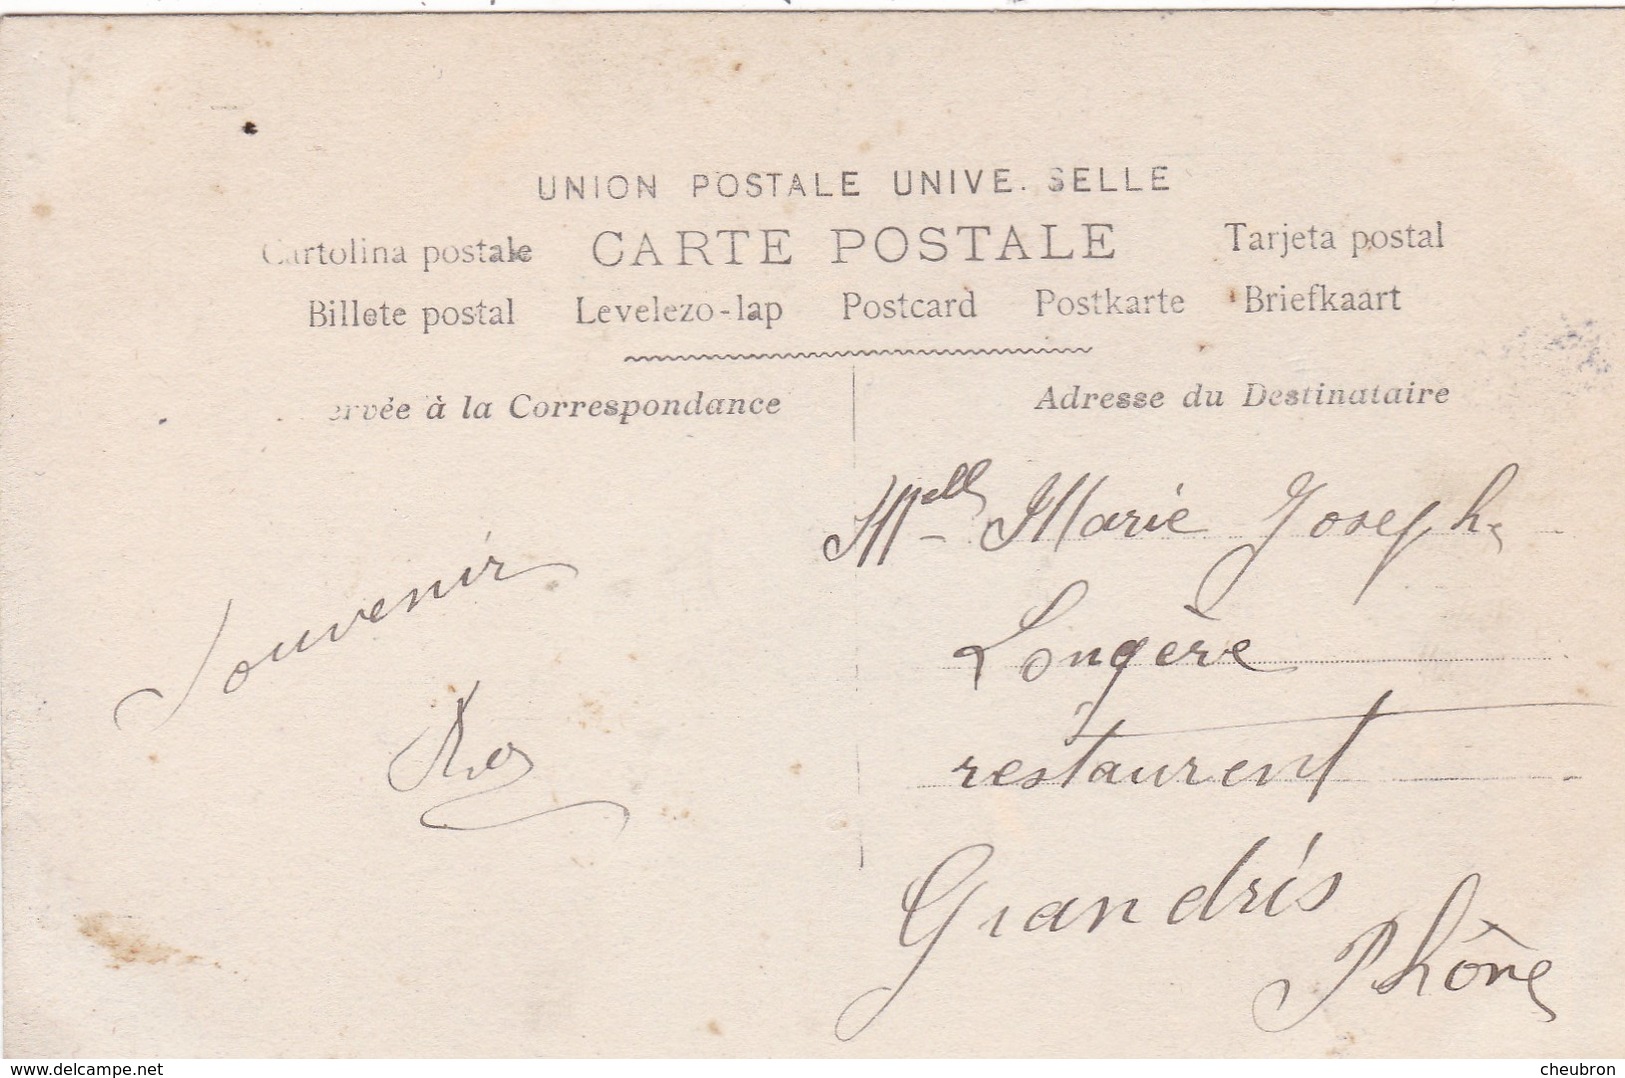 UNION POSTALE UNIVE. SELLE
Cartolina postale CARTE POSTALE Tarjeta postal
Billete postal Levelezo-lap Postcard Postkarte Briefkaart
ervée à la Correspondance
Adresse du Destinataire
Souvenir
Melle Marie Joseph
Longère
restaurent
Grandris
Rhône
delcampe.net
cheubron